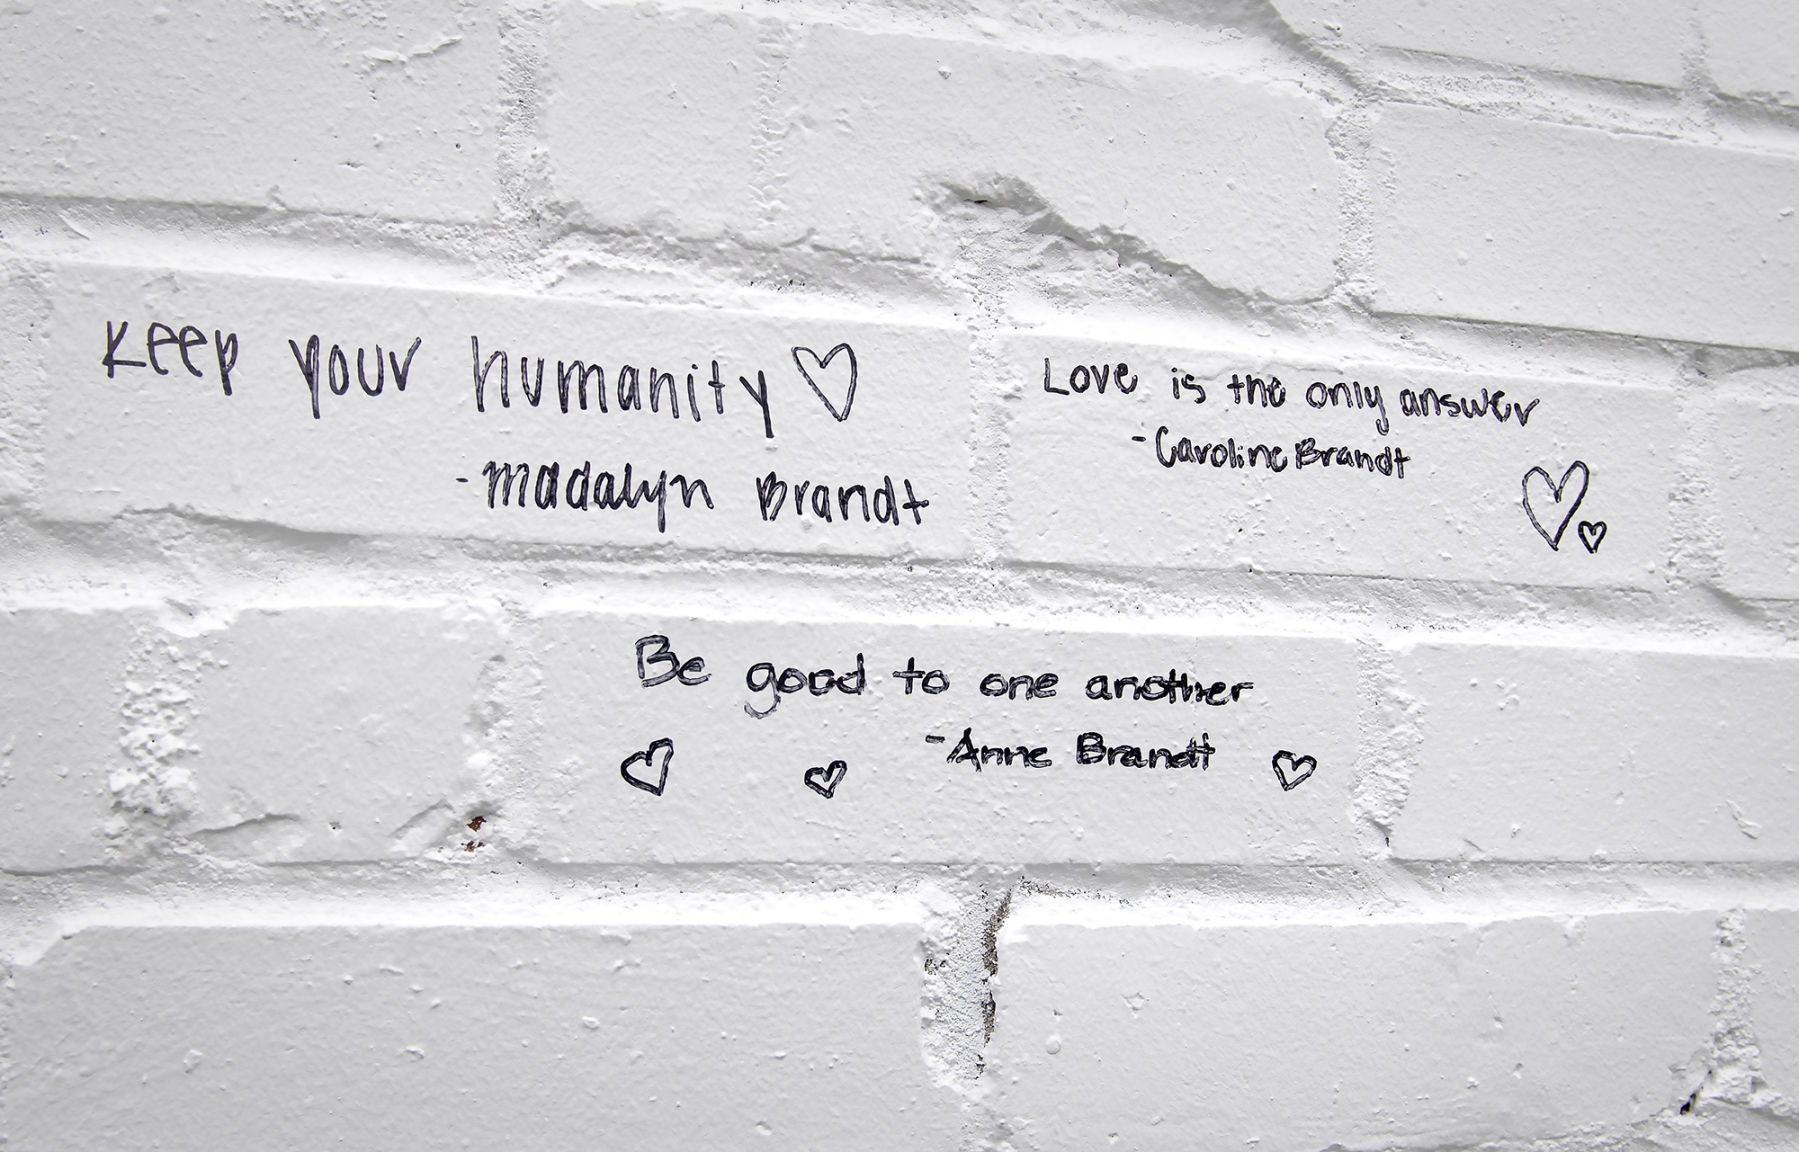 Keep your humanity
-Madalyn Brandt
Love is the only answer
-Caroline Brandt
Be good to one another
-Anne Brandt